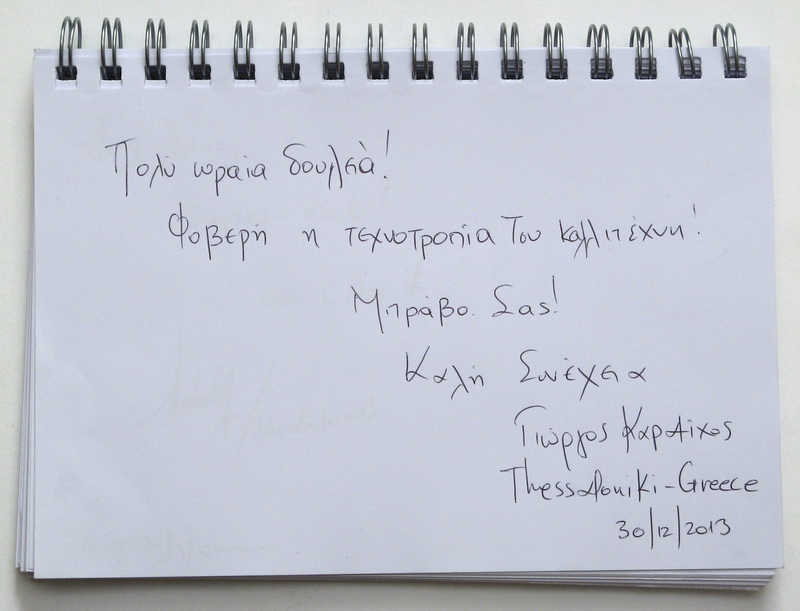 Πολύ ωραία δουλειά!
Φοβερή η τεχνοτροπία Του καλλιτέχνη!
Μπράβο Σας!
Καλή Συνέχεια
Γιώργος
Thessaloniki-Greece
30/12/2013